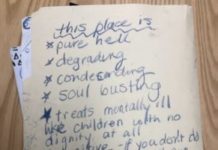 this place is
* pure hell
* degrading
* condesending
* soul busting
* treats mentally ill
like children with no
dignity at all
if you don't do